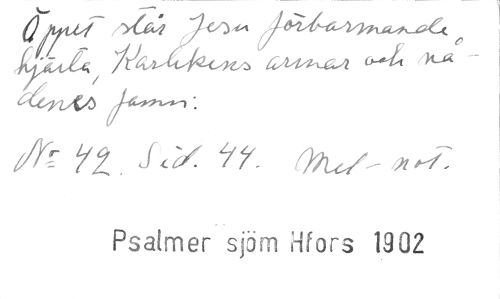 Öppet står Jesu förbarmande
hjärta, Kärlekens armar och nå-
denes famn:
No 42. Sid. 44. Mel-not.
Psalmer sjöm Hfors 1902